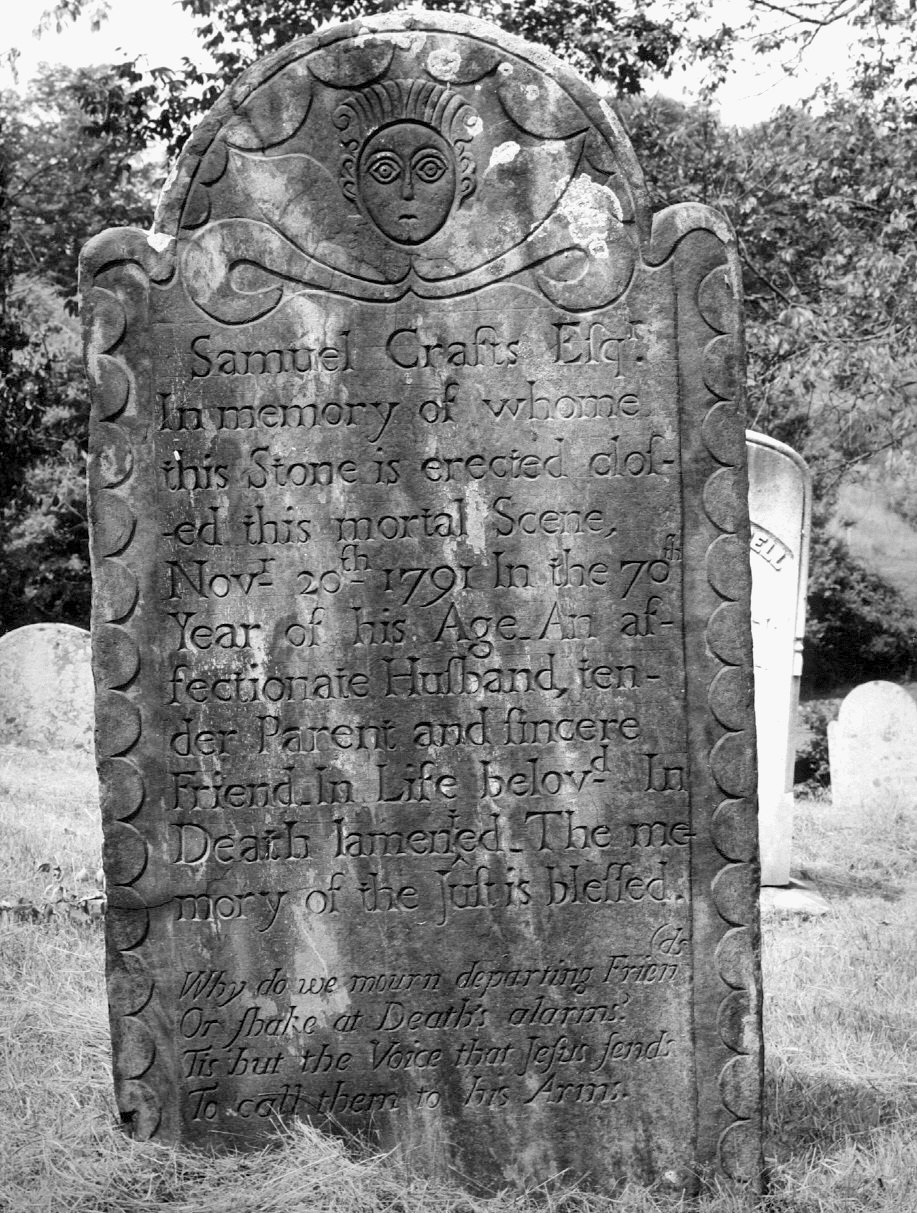 Samuel Crafts Eſqr.
In memory of whome
this Stone is erected cloſ-
-ed this mortal Scene,
Novr 20th 1791 In the 70th
Year of his Age_An af-
fectionate Huſband, ten-
der Parent and ſincere
Friend_In Life belovd In
Death lamented_The me-
mory of the Juſt is bleſſed.
Why do we mourn departing Friends
Or ſhake at Death's alarms?
'Tis but the Voice that Jeſus ſends
To call them to his Arms.
ELL